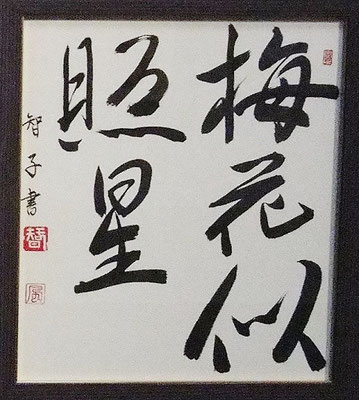 梅花似
照星
智子書
智